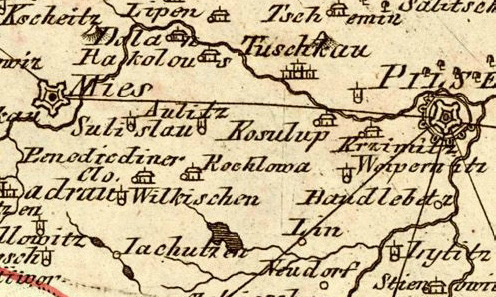 Kscheitz
Lipen
Tsch emin
Salitsch
Dolan
Hakolous
Tuschkau
wiz
Mies
PILSE
Aulitz
Sulislau
Kosulup
Krzimitz
Benedicdiner
Clo.
Rocklowa
Woipernitz
adrau
Wilkischen
Haudlebetz
tzen
llowitz
Lin
Iachutzen
Isylitz
sch
Neudorf
Stien
owi